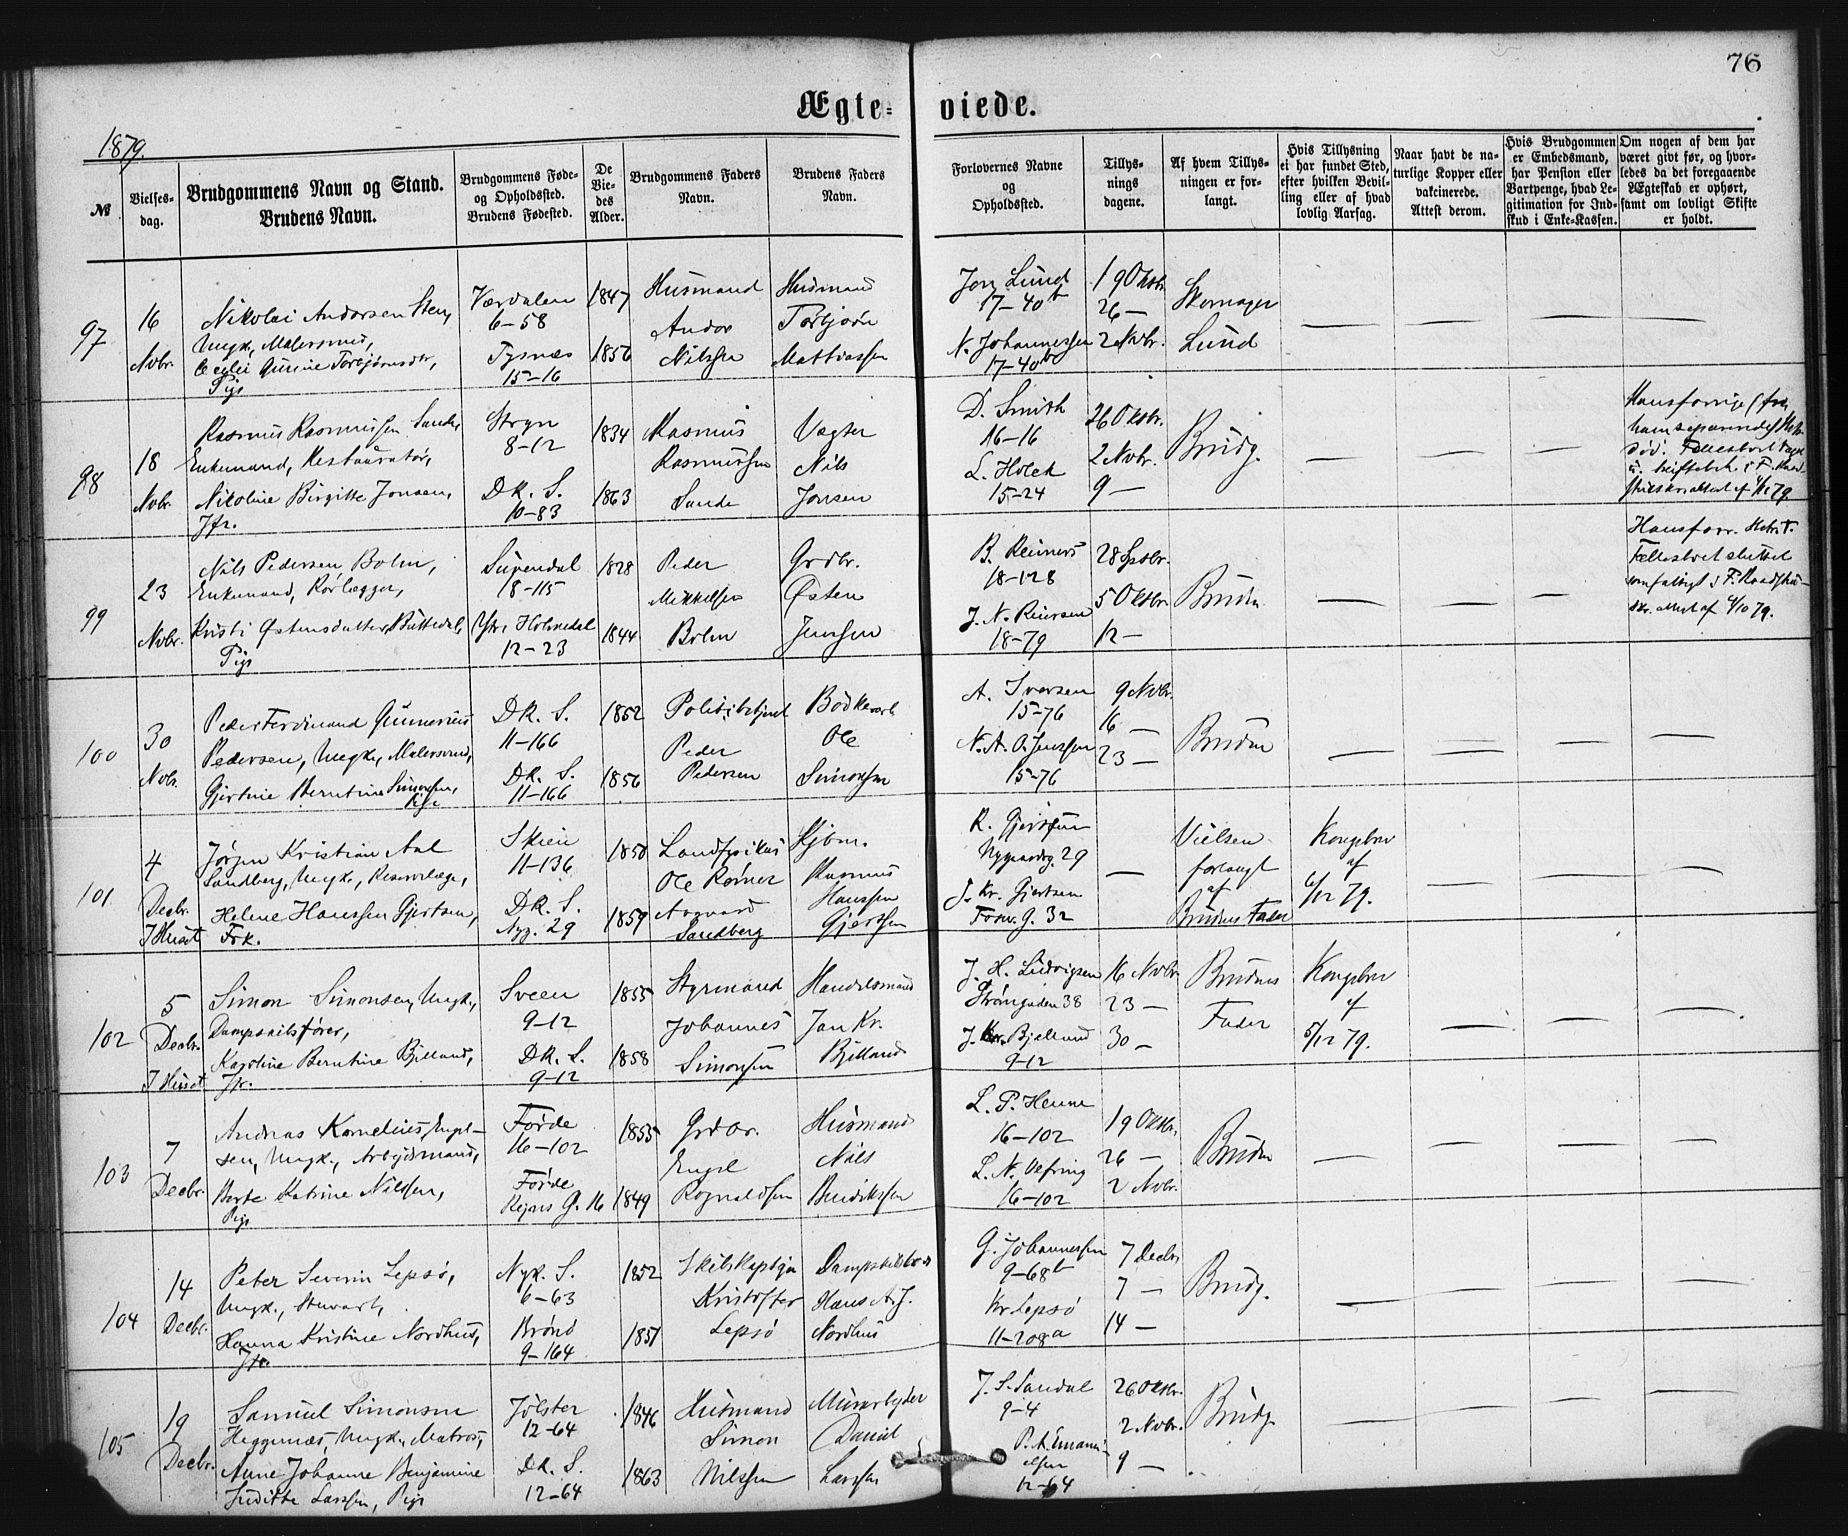 76
Ægte-viede.
1879.
№
Vielses-dag.
Brudgommens Navn og Stand.
Brudens Navn.
Brudgommens Føde-
og Opholdssted.
Brudens Fødested.
De Vie-des Alder.
Brudgommens Faders
Navn.
Brudens Faders
Navn.
Forlovernes Navne
og
Opholdssted.
Tillys-
nings
dagene.
Af hvem Tillys-
ningen er for-
langt.
Hvis Tillysning
ei har fundet Sted,
efter hvilken Bevil-
ling eller af hvad
lovlig Aarsag.
Naar havt de na-
turlige Kopper eller
vakcinerede.
Attest derom.
Hvis Brudgommen
er Embedsmand,
har Pension eller
Vartpenge, hvad Le-
gitimation for Ind-
skud i Enke-Kassen.
Om nogen af dem har
været givt før, og hvor-
ledes da det foregaaende
Ægteskab er ophørt,
samt om lovligt Skifte
er holdt.
97
16
Novbr.
Nikolai Andorsen Sten,
Ungk., Malersvend,
Gurine Torbjørnsdtr,
Pige
Værdalen
6-58
Tysnæs
15-16
1847
1856
Husmand
Andor
Nilssen
Husmand
Torbjørn
Mathiassen
Jon Lund
17-40b
N. Johannessen
17-40b
19 Oktbr.
26 —
2 Novbr.
Skomager
Lund
98
18
Novbr.
Rasmus Rasmussen Sande,
Enkemand, Restauratør,
Nikoline Birgitte Jonsen,
Jfr.
Stryn
8-12
DK. S.
10-83
1834
1863
Rasmus
Rasmussen
Sande
Vægter
Nils
Jonsen
D. Smith
16-16
L. Holck
15-24
26 Oktbr.
2 Novbr.
9 —
Brudg.
99
23
Novbr.
Nils Pedersen Bolm,
Enkemand, Rørlægger,
Kristi Østensdatter
Pige
Surendal
18-115
Ytr. Holmedal
12-23
1828
1844
Peder
Mikkelsen
Bolm
Grdbr.
Østen
Jenssen
B. Reimers
18-128
J. N. Reiersen
18-79
28 Septbr.
5 Oktbr.
12 —
Bruden
Fællesboet sluttet
100
30
Novbr.
Peder Ferdinand Gunnerius
Pedersen, Ungk., Malersvend,
Gjertine Berntine Simonsen,
Pige
DK. S.
11-166
DK. S.
11-166
1852
1856
Politibetjent
Peder
Pedersen
Bødkersv.
Ole
Simonsen
A. Iversen
15-76
N. A. O. Jenssen
15-76
9 Novbr.
16 —
23 —
Bruden
101
4
Decbr.
I Huset
Jørgen Kristian Aal
Sandberg, Ungk., Reservelæge,
Helene Hanssen Gjertsen,
Frk.
Skien
11-136
DK. S.
Nyg. 29
1850
1859
Landfysikus
Ole Rømer
Aagaard
Sandberg
Kjbm.
Rasmus
Hanssen
Gjertsen
R. Gjertsen
Nygaardsg. 29
J. Kr. Gjertsen
Fosw. G. 32
—
Vielsen
forlangt
af
Brudens Fader
Kongebrev
af
/12 79.
102
5
Decbr.
I Huset
Simon Simonsen, Ungk.,
Dampskibsfører,
Karoline Berntine Bjelland,
Jfr.
Sveen
9-12
DK. S.
9-12
1855
1858
Styrmand
Johannes
Simonsen
Handelsmand
Jan Kr.
Bjelland
J. H. Ludvigsen
Strandgaden 38
J. Kr. Bjelland
9-12
16 Novbr.
23 —
30 —
Brudens
Fader
Kongebrev
af
5/12 79.
103
7
Decbr.
Andreas Kornelius Engel-
sen, Ungk., Arbeidsmand,
Berte Katrine Nilssen,
Pige
Førde
16-102
Førde
G. 16
1855
1849
Grdbr.
Engel
Rognaldsen
Husmand
Nils
Bendiktssen
L. P. Henne
16-102
L. N. Vefring
16-102
19 Oktbr.
26 —
2 Novbr.
Bruden
104
14
Decbr.
Peter Severin Lepsø,
Ungk., Stuvart,
Hanna Kristine Nordhus,
Jfr.
Nyk. S.
6-63
Brønd
9-164
1852
1851
Kristoffer
Lepsø
Hans A. J.
Nordhus
G. Johannessen
9-68b
Kr Lepsø
11-208a
7 Decbr
7 —
14 —
Brudg.
105
19
Decbr.
Samuel Simonsen
Heggenæs, Ungk., Matros,
Anne Johanne Benjamine
Juditte Larssen, Pige
Jølster
12-64
DK. S.
12-64
1846
1863
Husmand
Simon
Nilssen
Murarbeider
David
Larssen
J. S. Sandal
9-4
P. A. Emanu-
elsen
12-64
26 Oktbr.
2 Novbr.
9 —
Brudg.